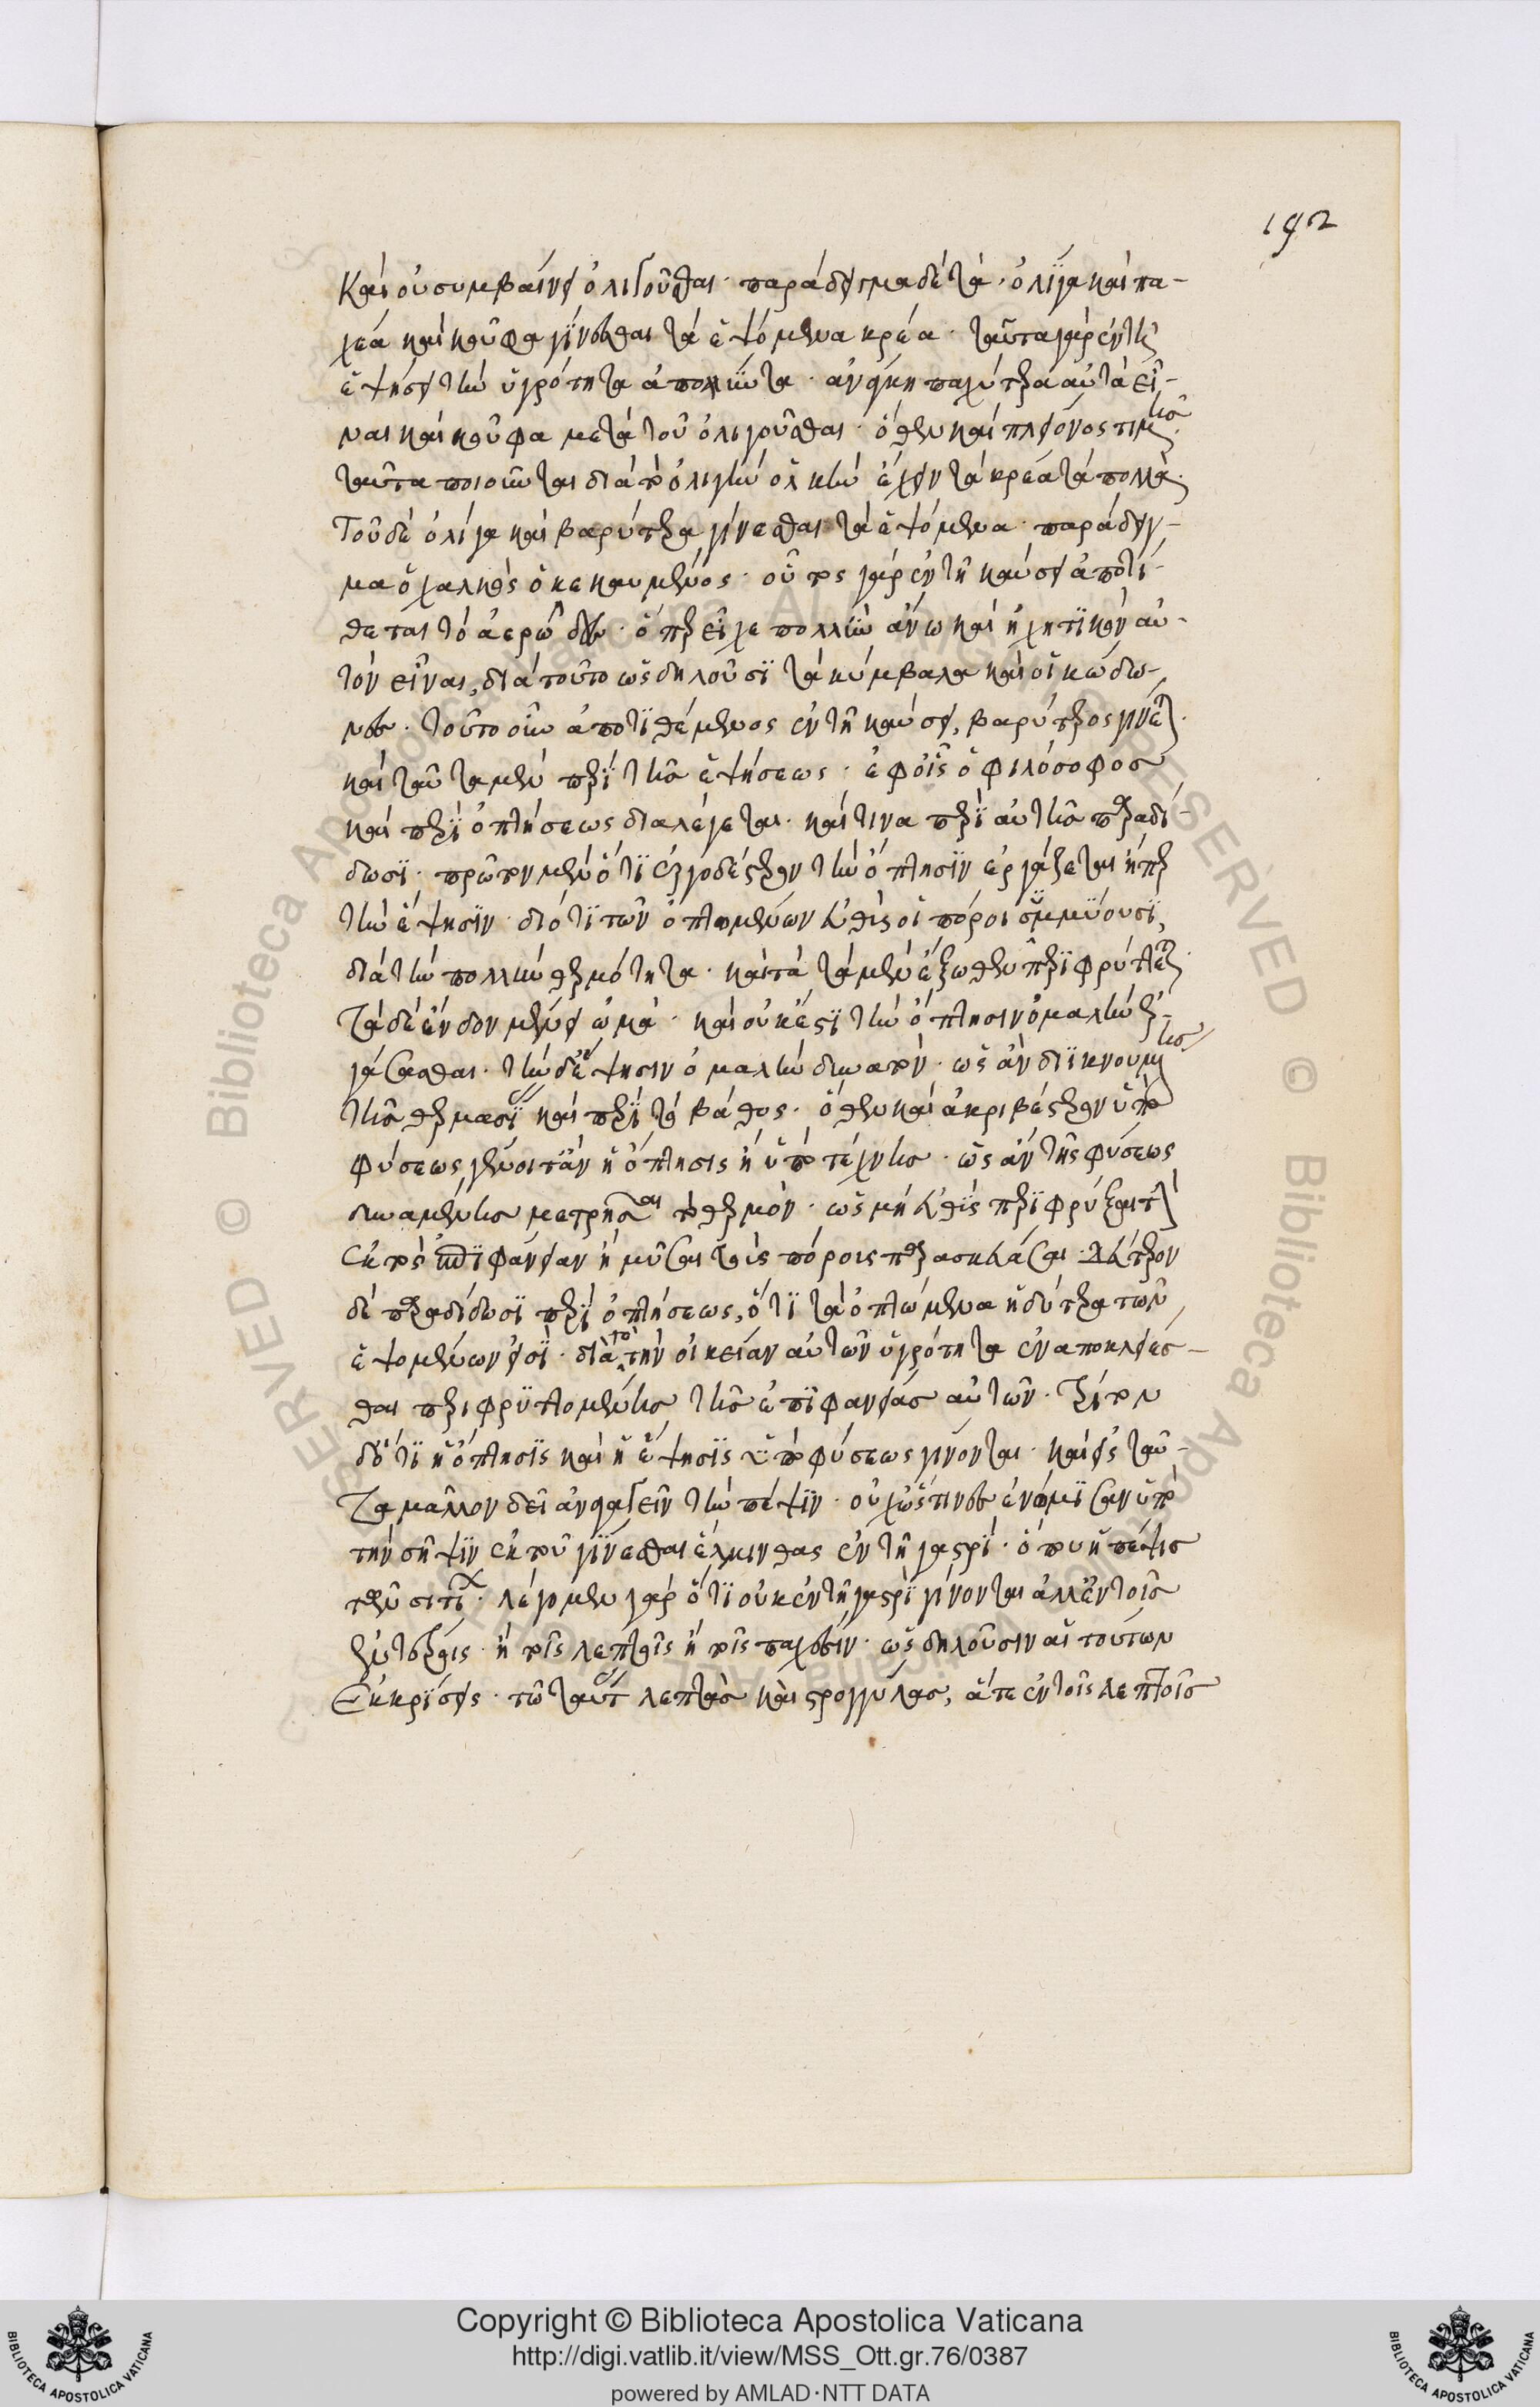 192
Καὶ οὐ συμβαίνει ὀλιγοῦσθαι· παράδειγμα δὲ τὰ· ὀλίγα καὶ πα-
χέα καὶ κοῦφα γίνεσθαι τὰ ἑψόμενα κρέα· ταῦτα γὰρ ἐν τῇ
ἑψήσει τὴν ὑγρότητα ἀπολλύντα· ἀνάγκη παχύτερα αὐτὰ εἶ-
ναι καὶ κοῦφα μετὰ τοῦ ὀλιγοῦσθαι· ὅθεν καὶ πλείονος τιμῆς
ταῦτα ποιοῦνται διὰ τὸ ὀλίγην ὁλκὴν ἔχειν τὰ κρέα τὰ πολλά.
Τοῦ δὲ ὀλίγα καὶ βαρύτερα γίνεσθαι τὰ ἑψόμενα· παράδειγ-
μα ὁ χαλκὸς ὁ κεκαυμένος· οὗτος γὰρ ἐν τῇ καύσει ἀποτί-
θεται τὸ ἀερῶδες· ὅπερ εἶχε πολλὴν ἄνω καὶ ἠχητικὸν αὐ-
τὸν εἶναι, διὰ τοῦτο ὡς δηλοῦσι τὰ κύμβαλα καὶ οἱ κώδω-
νες· τοῦτο οὖν ἀποτιθέμενος ἐν τῇ καύσει, βαρύτερος γίνεται.
καὶ ταῦτα μὲν περὶ τῆς ἑψήσεως· ἐφ οἷς ὁ φιλόσοφος
καὶ περὶ ὀπτήσεως διαλέγεται· καί τινα περὶ αὐτῆς παραδί-
δωσι· πρῶτον μὲν ὅτι ἐργοδέστερον τὴν ὄπτησιν ἐργάζεται ἤπερ
τὴν ἕψησιν· διότι τῶν ὀπτωμένων εὐθὺς οἱ πόροι συμμύουσι,
διὰ τὴν πολλὴν θερμότητα· καὶ τὰ μὲν ἔξωθεν περιφρύττεται
τὰ δὲ ἔνδον μένει ὠμὰ· καὶ οὐκ ἔστι τὴν ὄπτησιν ὁμαλὴν ἐρ-
γάσασθαι· τὴν δὲ ἕψησιν ὁμαλὴν δυνατόν· ὡς ἂν διϊκνουμένης
τῆς θερμασί καὶ περὶ τὸ βάθος· ὅθεν καὶ ἀκριβέστερον ὑπὸ
φύσεως γένοιτ ἂν ἡ ὄπτησις ἢ ὑπὸ τέχνης· ὡς ἂν τῆς φύσεως
δυναμένης μετρῆσαι τὸ θερμόν· ὡς μὴ εὐθὺς περιφρύξαι τὴν
ἐκτὸς ἐπιφάνειαν ἢ μῦσαι τοὺς πόρους παρασκευάσαι· δεύτερον
δὲ παραδίδωσι περὶ ὀπτήσεως, ὅτι τὰ ὀπτώμενα ἡδύτερα τῶν
ἑψομένων εἰσὶ· διὰ τὸ τὴν οἰκείαν αὐτῶν ὑγρότητα ἐναποκλείεσ-
θαι περιφρυττομένης τῆς ἐπιφανείας αὐτῶν· τρίτον
διότι ἡ ὄπτησις καὶ ἡ ἕψησις ὑπὸ φύσεως γίνονται· καὶ εἰς ταῦ-
τα μᾶλλον δεῖ ἀναγαγεῖν τὴν πέψιν· οὐχ ὥς τινες ἐνόμισαν ὑπὸ
τὴν σῆψιν ἐκ τοῦ γίνεσθαι ἕλμινθας ἐν τῇ γαστρὶ· ὅπου ἡ πέψις
τῶν σιτί· λέγομεν γὰρ ὅτι οὐκ ἐν τῇ γαστρὶ γίνονται ἀλλ ἐν τοῖς
ἐντέροις· ἢ τοῖς λεπτοῖς ἢ τοῖς παχέσιν· ὡς δηλοῦσιν αἱ τούτων
Ἐκκρίσεις· τῶ ταύτ λεπτὰς καὶ στρογγύλας, ἅτε ἐν τοῖς λεπτοῖς
Copyright © Biblioteca Apostolica Vaticana
http://digi.vatlib.it/view/MSS_Ott.gr.76/0387
powered by AMLAD·NTT DATA